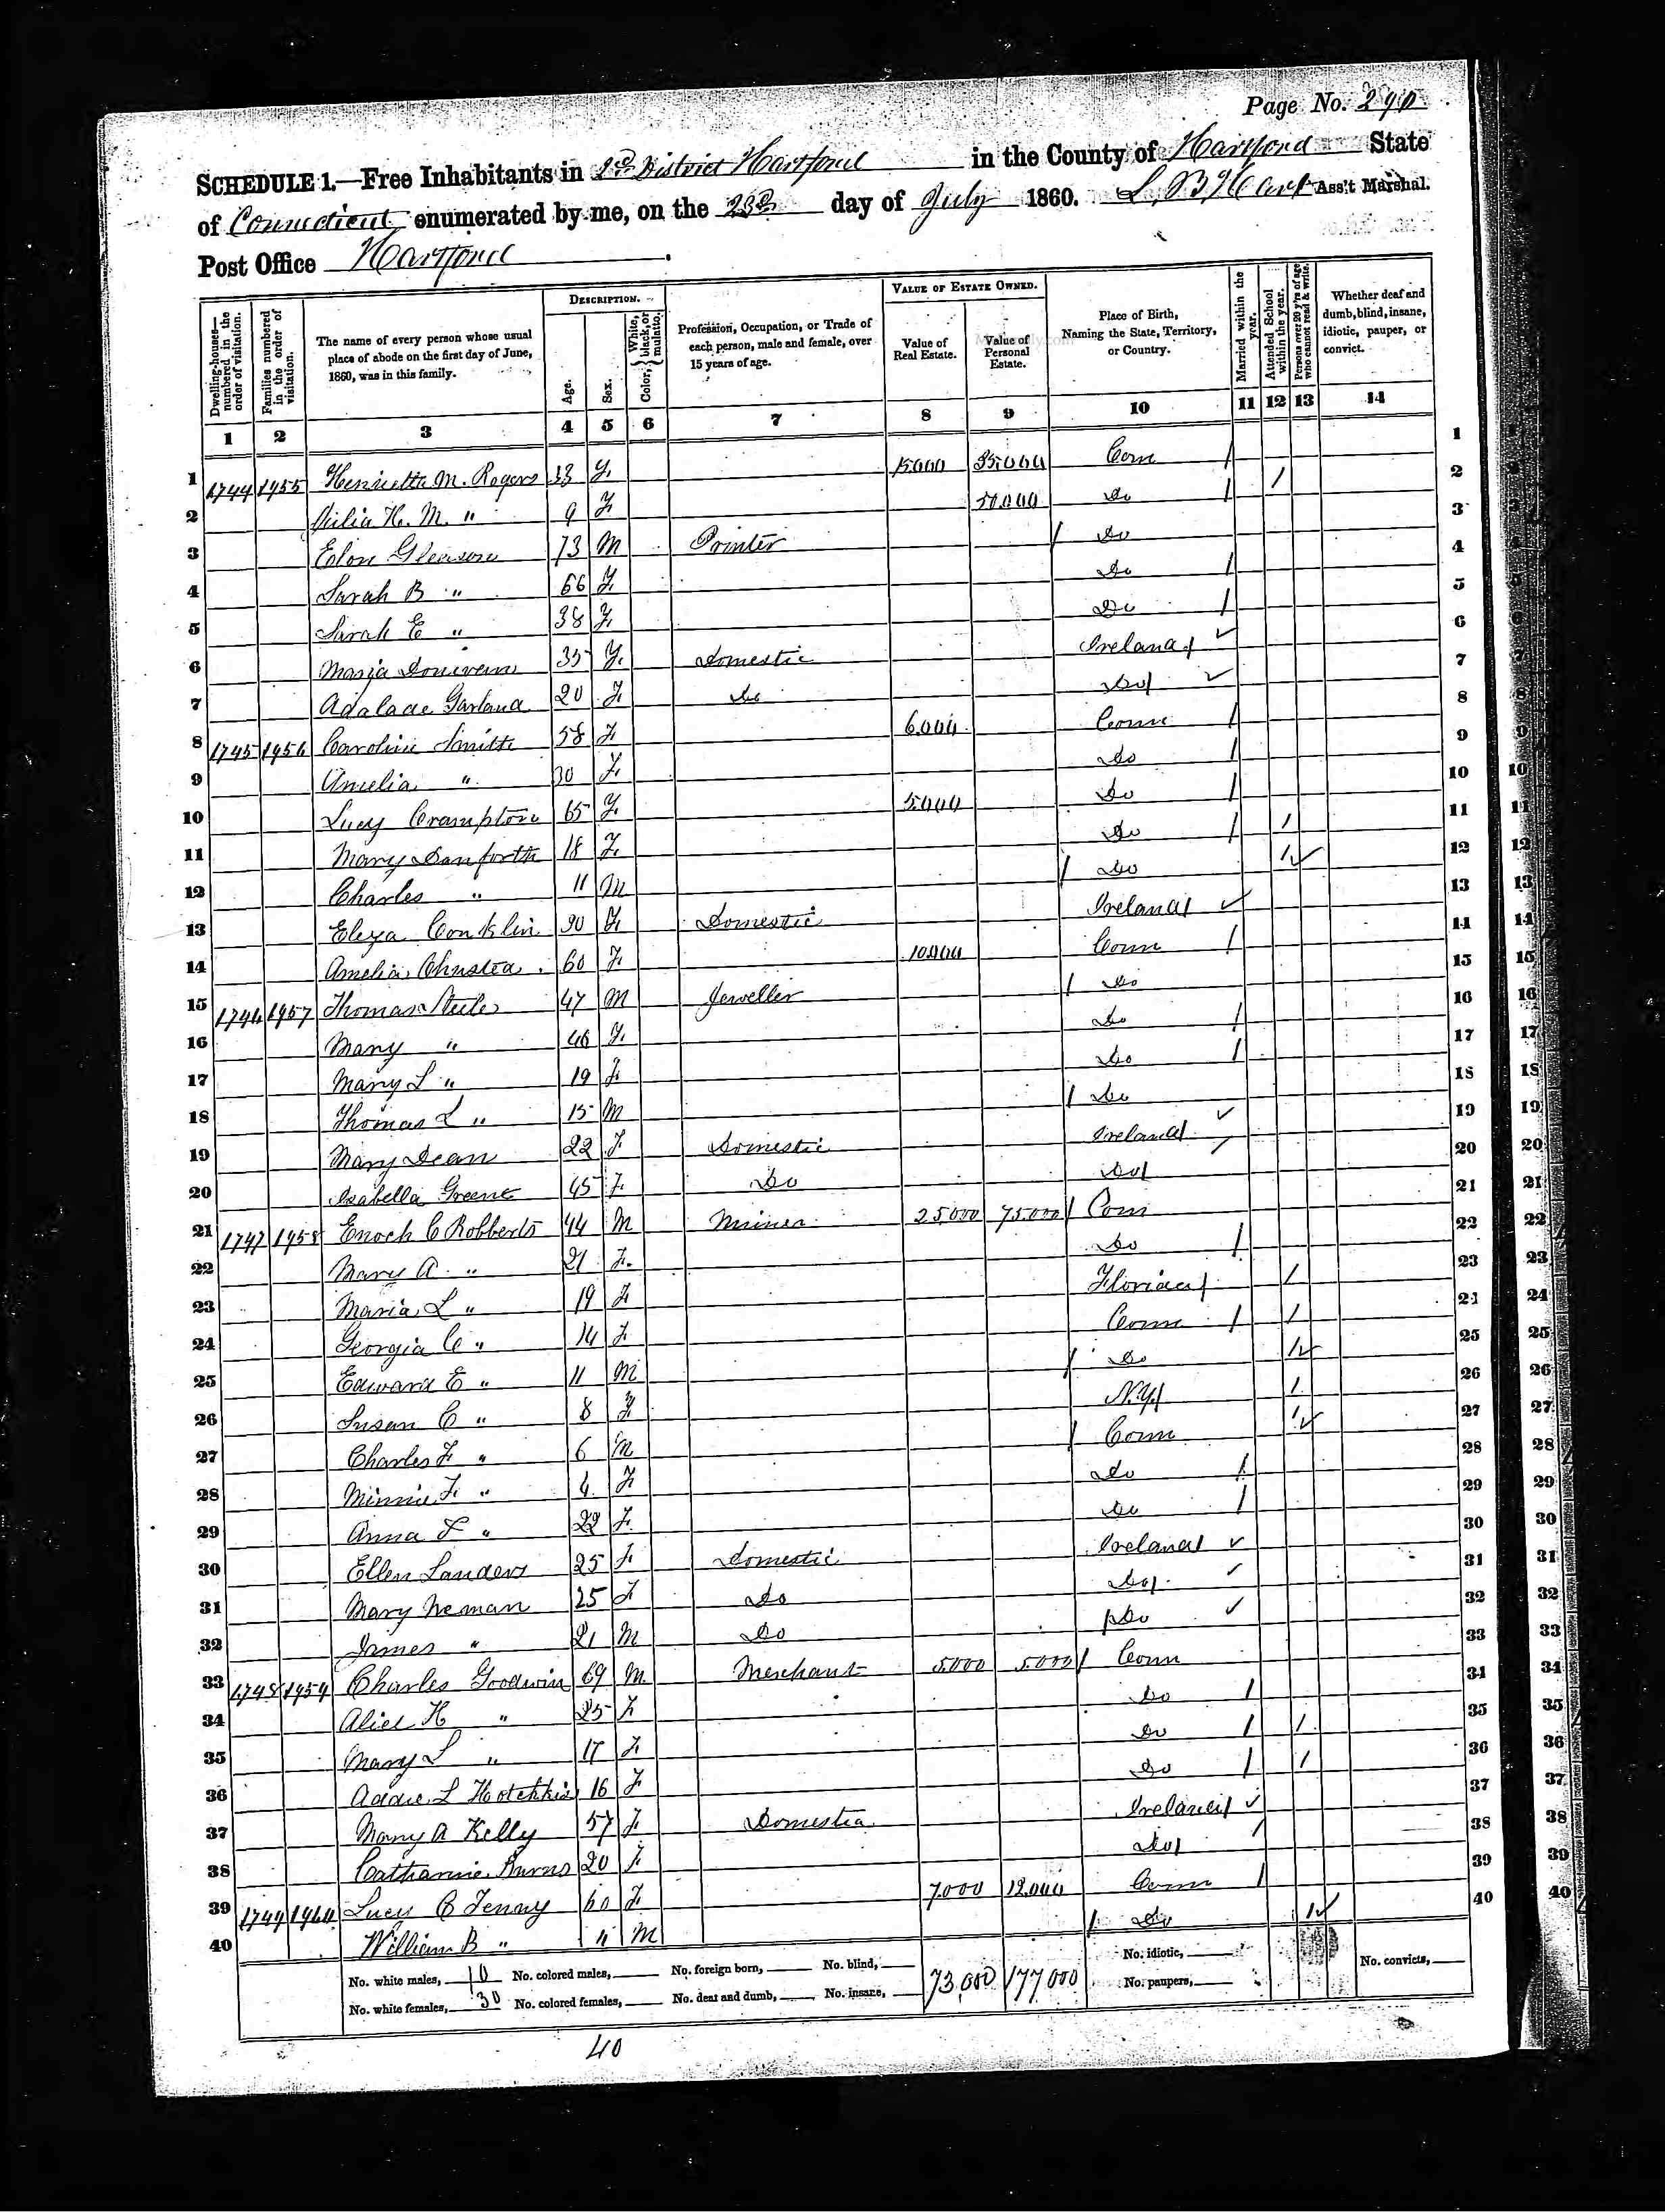 Page No. 290
SCHEDULE 1.—Free Inhabitants in 2d District Hartford in the County of Hartford State
of Connecticut enumerated by me, on the 23d day of July 1860. L. B. Hart Ass't Marshal.
Post Office Hartford
Dwelling-houses—numbered in the order of visitation. Families numbered in the order of visitation. The name of every person whose usual place of abode on the first day of June, 1860, was in this family. DESCRIPTION. Age. Sex. Color, White, black, or mulatto. Profession, Occupation, or Trade of each person, male and female, over 15 years of age. VALUE OF ESTATE OWNED. Value of Real Estate. Value of Personal Estate. Place of Birth, Naming the State, Territory, or Country. Married within the year. Attended School within the year. Persons over 20 y'rs of age who cannot read & write. Whether deaf and dumb, blind, insane, idiotic, pauper, or convict.
1 2 3 4 5 6 7 8 9 10 11 12 13 14
1 1744 1955 Henrietta M. Rogers 33 F. 15000 35,000 Conn / 1
2 Julia H. M. " 9 F 50,000 Do / / 2
3 Gleason 73 M Printer / Do 3
4 Sarah B " 66 F. Do / 4
5 Sarah E " 38 F. Do / 5
6 35 F. Domestic Ireland / ✓ 6
7 Adalade Garland 20 F. Do Do / ✓ 7
8 1745 1956 Caroline Smith 58 F 6,000 Conn / 8
9 Amelia " 30 F. Do / 9
10 Lucy Crampton 65 F. 5,000 Do / 10
11 Mary Danforth 18 F. Do / / 11
12 Charles " 11 M / Do / ✓ 12
13 Eleza Conklin 30 F. Domestic Ireland / ✓ 13
14 Amelia 60 F. 10,000 Conn / 14
15 1746 1957 Thomas Steele 47 M Jeweller / Do 15
16 Mary " 46 F. Do / 16
17 Mary L " 19 F. Do / 17
18 Thomas L " 15 M / Do 18
19 Mary Dean 22 F Domestic Ireland / ✓ 19
20 Isabella Greene 45 F. Do Do / ✓ 20
21 1747 1958 Enoch C Robberts 44 M 25000 75,000 / Conn 21
22 Mary A. " 21 F. Do / 22
23 Maria L " 19 F Florida / / 23
24 Georgia C " 14 F. Conn / / 24
25 Edward E " 11 M / Do / ✓ 25
26 Susan C " 8 F N.Y. / / 26
27 Charles F " 6 M / Conn / ✓ 27
28 Minnie F. " 4 F Do / 28
29 Anna F " 22 F. Do / 29
30 Ellen Landers 25 F. Domestic Ireland / ✓ 30
31 Mary Neman 25 F Do Do / ✓ 31
32 James " 21 M Do / Do ✓ 32
33 1748 1959 Charles Goodwin 69 M. Merchant 5000 5000 / Conn 33
34 Alice H " 25 F Do / 34
35 Mary L " 17 F. Do / / 35
36 Addie L Hotchkis 16 F Do / / 36
37 Mary A Kelly 57 F. Domestic Ireland / ✓ 37
38 Catharine Burns 20 F. Do / / 38
39 1749 1960 Lucy C Tenny 60 F. 7000 12,000 Conn / 39
40 William B " 11 M / Do / ✓ 40
No. white males, 10 No. colored males, No. foreign born, No. blind, 73,000 177,000 No. idiotic, No. convicts,
No. white females, 30 No. colored females, No. deaf and dumb, No. insane, No. paupers,
40